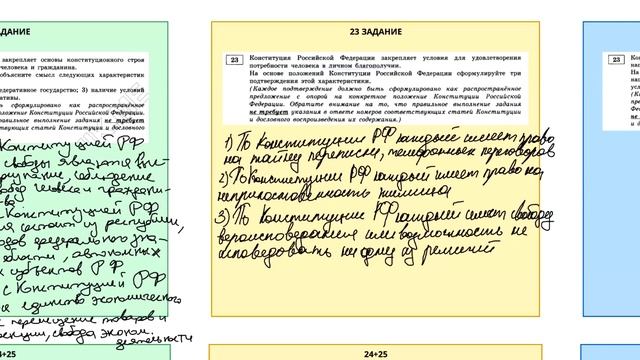 ЗАДАНИЕ
закрепляет основы конституционного строя
человека и гражданина.
объясните смысл следующих характеристик
едеративное государство; 3) наличие условий
ативы.
сформулировано как распространённое
положение Конституции Российской Федерации.
правильное выполнение задания не требует
ствующих статей Конституции и дословного
Конституцией РФ
свободы являются
соблюдение
обод человека и граждани-
на.
с Конституцией РФ
состоит из республик,
родов федерального зна-
области, автономных
х субъектов РФ
с Конституцией РФ
единство экономического
перемещение товаров и
свобода эконом.
деятельности
4+25
23 ЗАДАНИЕ
23
Конституция Российской Федерации закрепляет условия для удовлетворения
потребности человека в личном благополучии.
На основе положений Конституции Российской Федерации сформулируйте три
подтверждения этой характеристики.
(Каждое подтверждение должно быть сформулировано как распространённое
предложение с опорой на конкретное положение Конституции Российской
Федерации. Обратите внимание на то, что правильное выполнение задания
не требует указания в ответе номеров соответствующих статей Конституции
и дословного воспроизведения их содержания.)
1) По Конституции РФ каждый имеет право
на тайну переписки, телефонных переговоров
2) По Конституции РФ каждый имеет право на
неприкосновенность жилища
3) По Конституции РФ каждый имеет свободу
вероисповедания или возможность не
исповедовать ни одну из религий
24+25
23